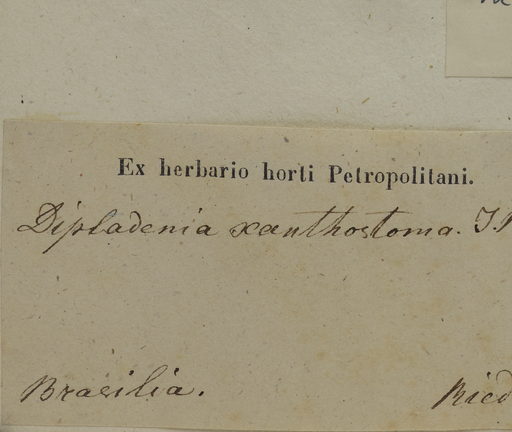 Ex herbario horti Petropolitani.
Dipladenia xanthostoma.
Brasilia. Ried